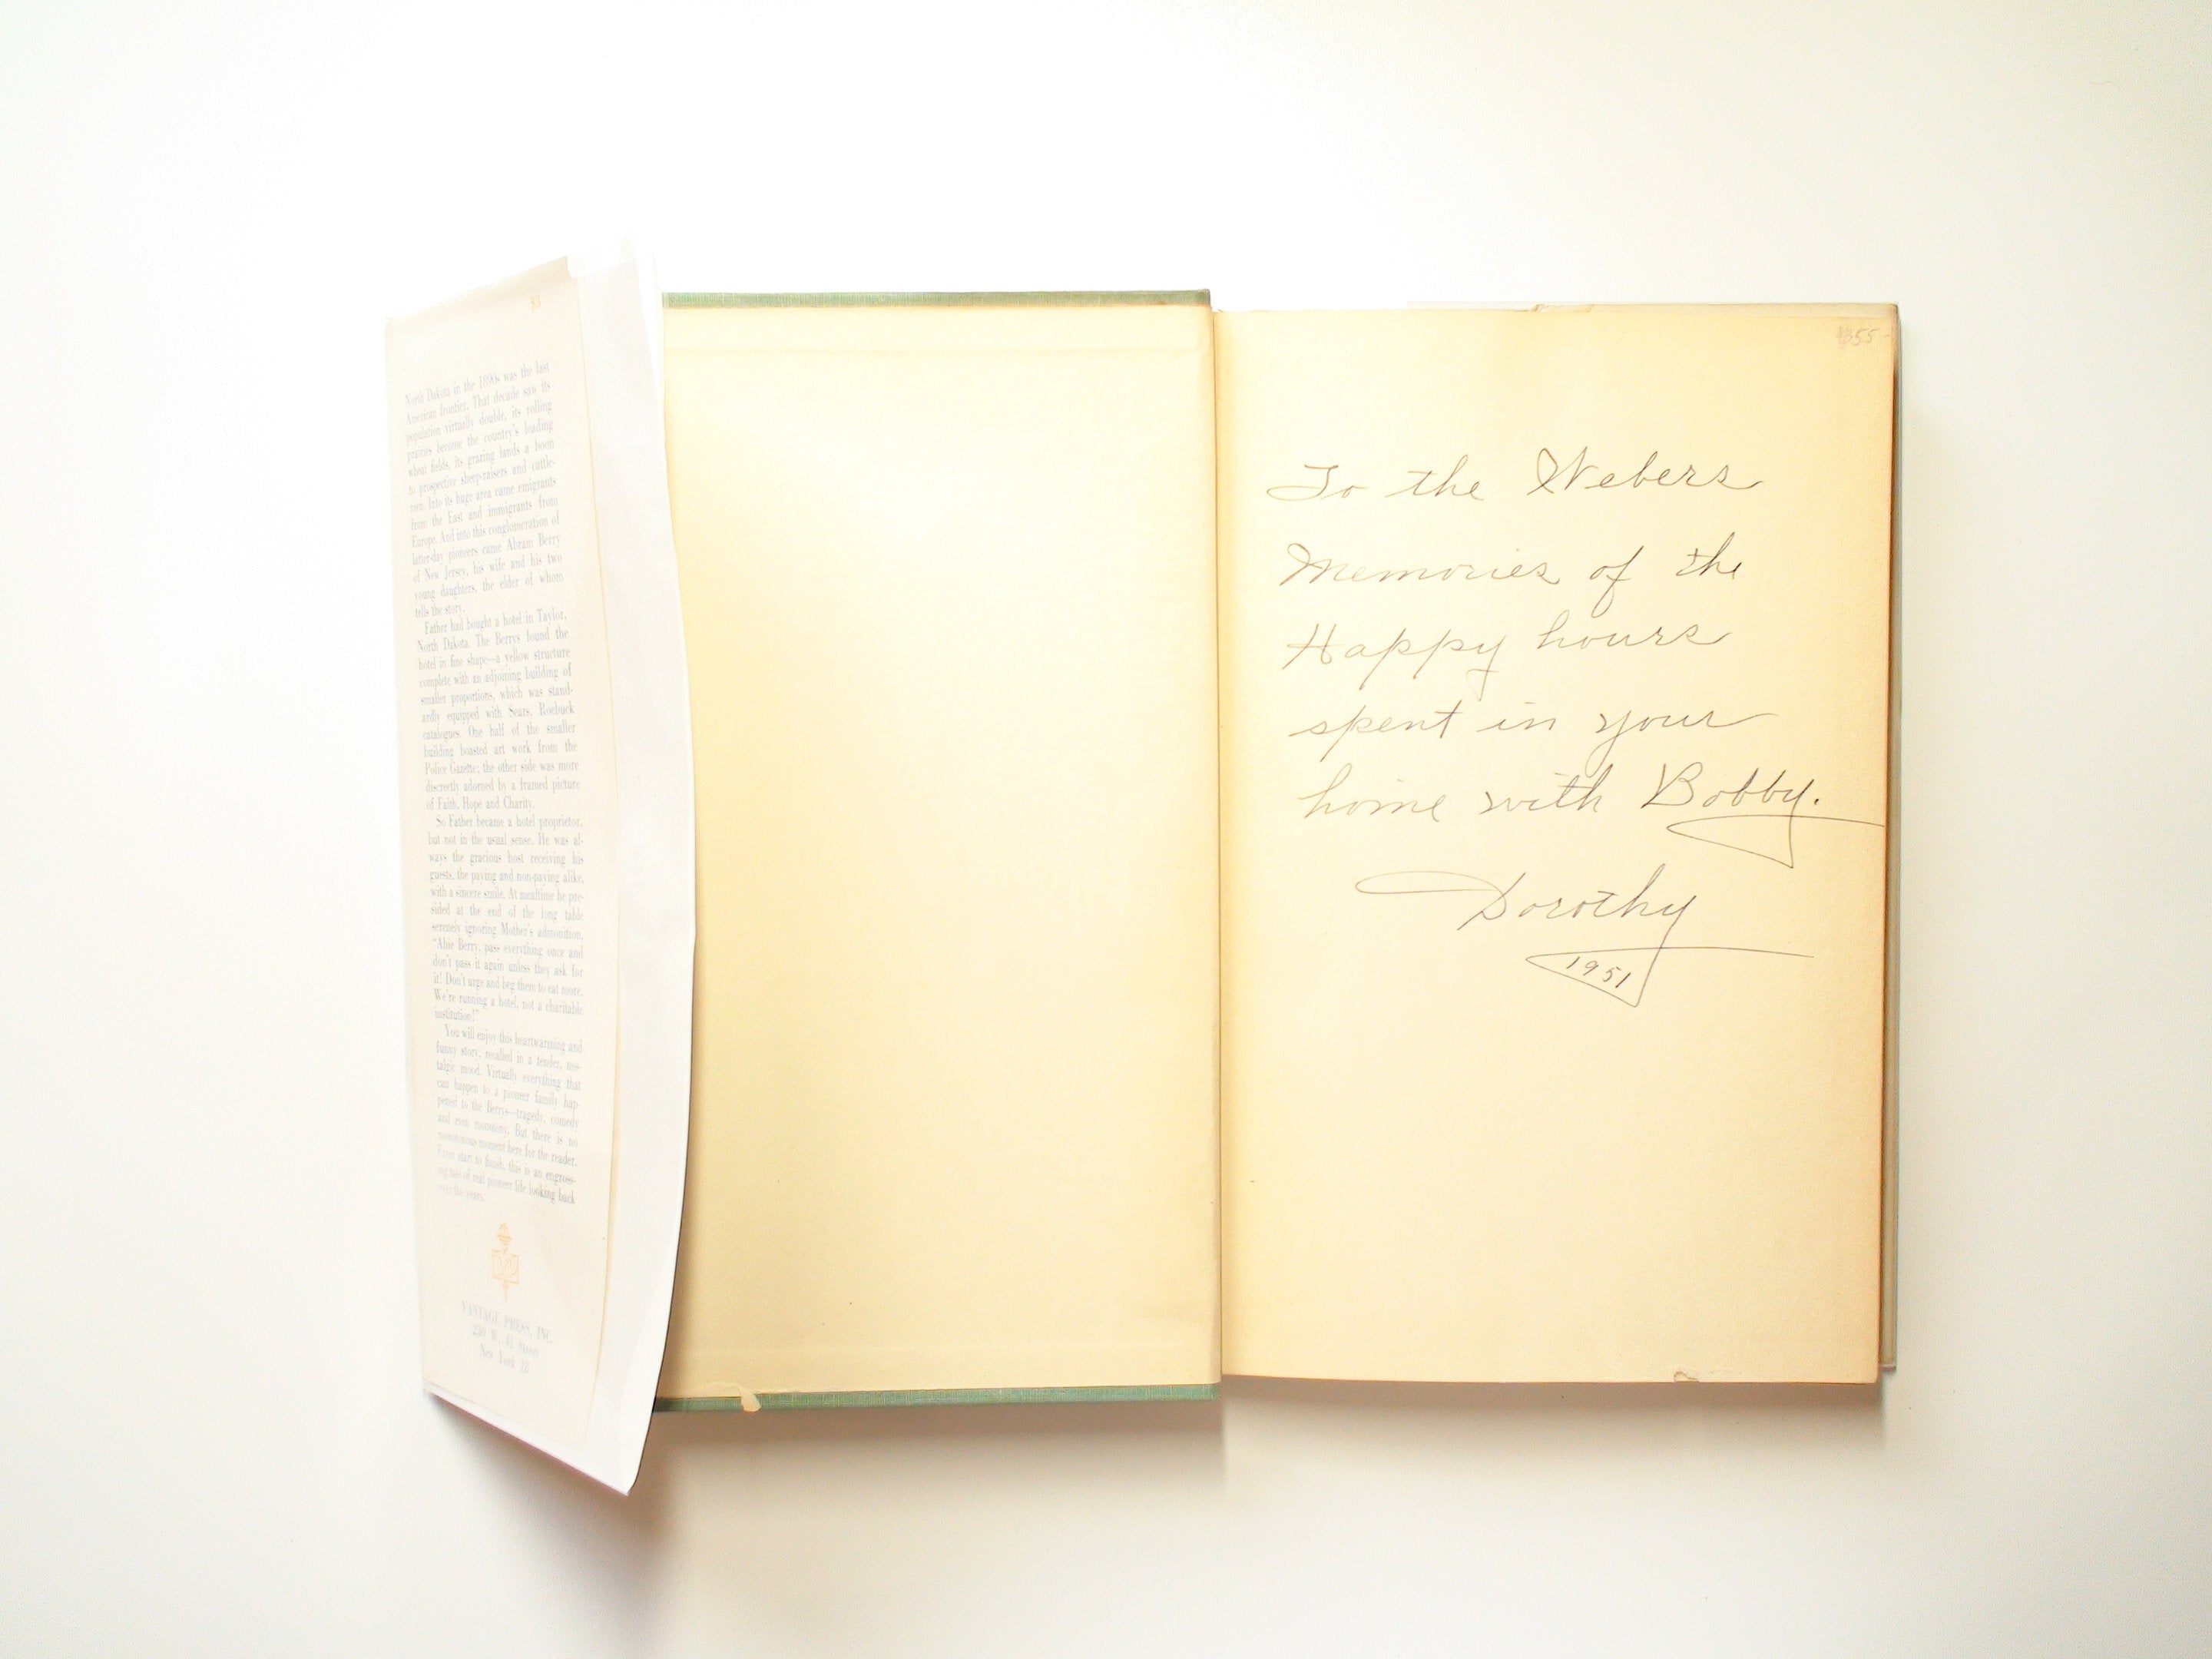 $3
North Dakota in the 1890s was the last
American frontier. That decade saw its
population virtually double, its rolling
prairies become the country's leading
wheat fields, its grazing lands a boon
to prospective sheep-raisers and cattle-
men. Into its huge area came emigrants
from the East and immigrants from
Europe. And into this conglomeration of
latter-day pioneers came Abram Berry
of New Jersey, his wife and his two
young daughters, the elder of whom
tells the story.
Father had bought a hotel in Taylor,
North Dakota. The Berrys found the
hotel in fine shape—a yellow structure
complete with an adjoining building of
smaller proportions, which was stand-
ardly equipped with Sears, Roebuck
catalogues. One half of the smaller
building boasted art work from the
Police Gazette; the other side was more
discreetly adorned by a framed picture
of Faith, Hope and Charity.
So Father became a hotel proprietor,
but not in the usual sense. He was al-
ways the gracious host receiving his
guests, the paying and non-paying alike,
with a sincere smile. At mealtime he pre-
sided at the end of the long table
serenely ignoring Mother's admonition,
"Abie Berry, pass everything once and
don't pass it again unless they ask for
it! Don't urge and beg them to eat more.
We're running a hotel, not a charitable
institution!"
You will enjoy this heartwarming and
funny story, recalled in a tender, nos-
talgic mood. Virtually everything that
can happen to a pioneer family hap-
pened to the Berrys—tragedy, comedy
and even monotony. But there is no
monotonous moment here for the reader.
From start to finish, this is an engross-
ing tale of real pioneer life looking back
over the years.
VANTAGE PRESS, INC.
230 W. 41 Street
New York 18
55-
To the Webers
Memories of the
Happy hours
spent in your
home with Bobby.
Dorothy
1951